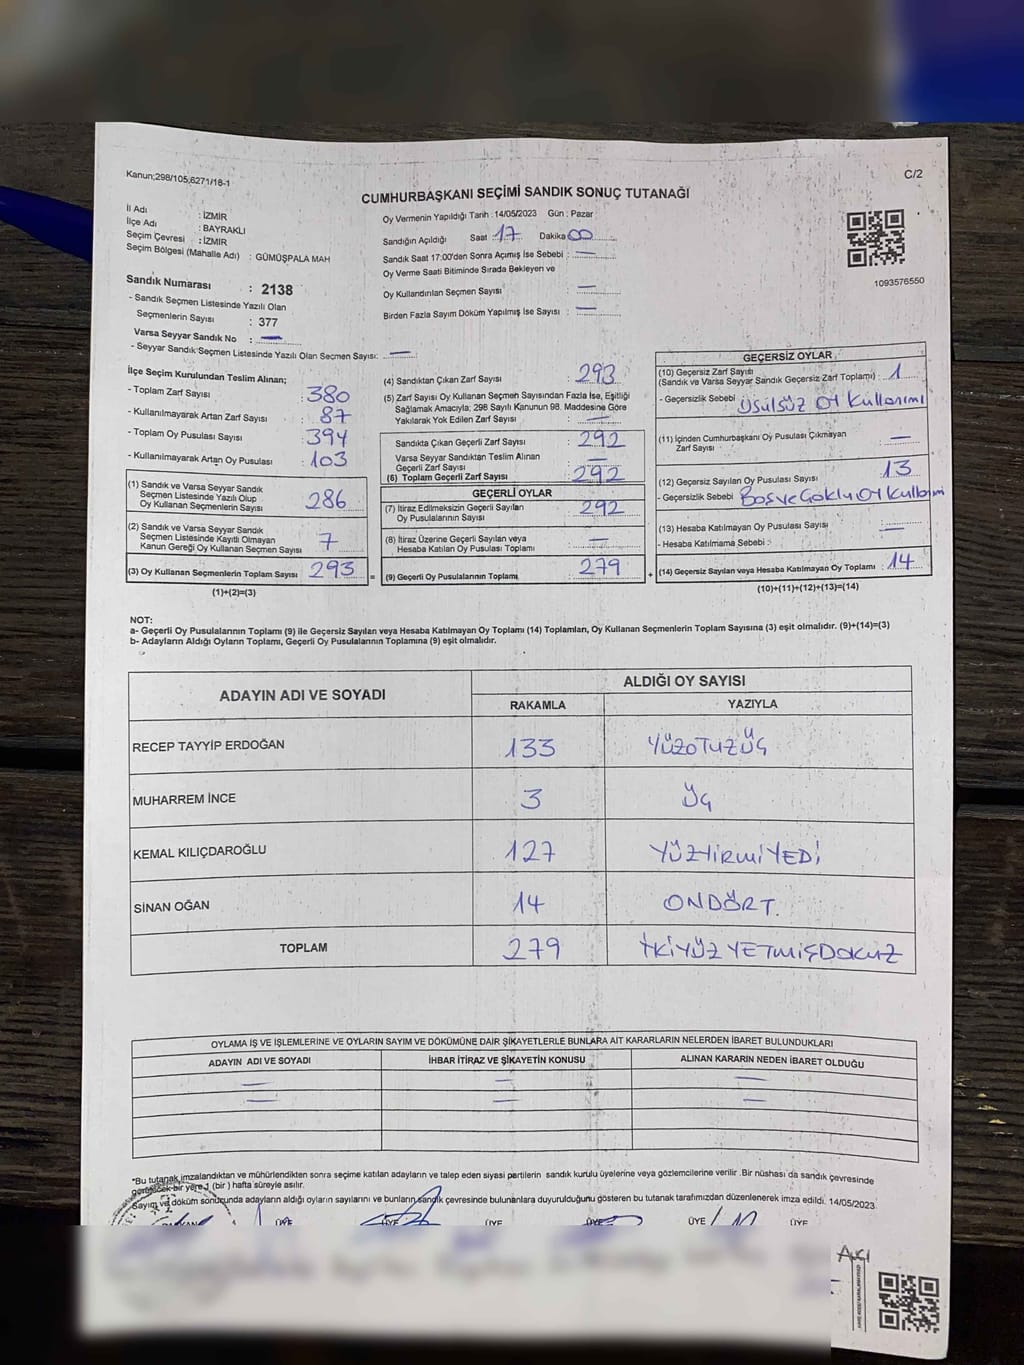 Kanun;298/105,6271/18-1
C/2
CUMHURBAŞKANI SEÇİMİ SANDIK SONUÇ TUTANAĞI
İl Adı : İZMİR
İlçe Adı : BAYRAKLI
Seçim Çevresi : İZMİR
Seçim Bölgesi (Mahalle Adı) : GÜMÜŞPALA MAH
Oy Vermenin Yapıldığı Tarih : 14/05/2023 Gün : Pazar
Sandığın Açıldığı Saat : 17 Dakika 00
Sandık Saat 17:00'den Sonra Açımış İse Sebebi : —
Oy Verme Saati Bitiminde Sırada Bekleyen ve
Oy Kullandırılan Seçmen Sayısı : —
Birden Fazla Sayım Döküm Yapılmış İse Sayısı : —
1093576550
Sandık Numarası : 2138
- Sandık Seçmen Listesinde Yazılı Olan
Seçmenlerin Sayısı : 377
Varsa Seyyar Sandık No : —
- Seyyar Sandık Seçmen Listesinde Yazılı Olan Secmen Sayısı: —
İlçe Seçim Kurulundan Teslim Alınan;
- Toplam Zarf Sayısı : 380
- Kullanılmayarak Artan Zarf Sayısı : 87
- Toplam Oy Pusulası Sayısı : 394
- Kullanılmayarak Artan Oy Pusulası : 103
(1) Sandık ve Varsa Seyyar Sandık
Seçmen Listesinde Yazılı Olup
Oy Kullanan Seçmenlerin Sayısı : 286
(2) Sandık ve Varsa Seyyar Sandık
Seçmen Listesinde Kayıtlı Olmayan
Kanun Gereği Oy Kullanan Seçmen Sayısı : 7
(3) Oy Kullanan Seçmenlerin Toplam Sayısı : 293 =
(1)+(2)=(3)
(4) Sandıktan Çıkan Zarf Sayısı : 293
(5) Zarf Sayısı Oy Kullanan Seçmen Sayısından Fazla İse, Eşitliği
Sağlamak Amacıyla; 298 Sayılı Kanunun 98. Maddesine Göre
Yakılarak Yok Edilen Zarf Sayısı : —
Sandıkta Çıkan Geçerli Zarf Sayısı : 292
Varsa Seyyar Sandıktan Teslim Alınan
Geçerli Zarf Sayısı : —
(6) Toplam Geçerli Zarf Sayısı : 292
GEÇERLİ OYLAR
(7) İtiraz Edilmeksizin Geçerli Sayılan
Oy Pusulalarının Sayısı : 292
(8) İtiraz Üzerine Geçerli Sayılan veya
Hesaba Katılan Oy Pusulası Toplamı : —
(9) Geçerli Oy Pusulalarının Toplamı : 279 +
GEÇERSİZ OYLAR
(10) Geçersiz Zarf Sayısı
(Sandık ve Varsa Seyyar Sandık Geçersiz Zarf Toplamı) : 1
- Geçersizlik Sebebi : Usulsüz oy kullanımı
(11) İçinden Cumhurbaşkanı Oy Pusulası Çıkmayan
Zarf Sayısı : —
(12) Geçersiz Sayılan Oy Pusulası Sayısı : 13
- Geçersizlik Sebebi : Boş ve Çoklu oy kullanımı
(13) Hesaba Katılmayan Oy Pusulası Sayısı : —
- Hesaba Katılmama Sebebi :
(14) Geçersiz Sayılan veya Hesaba Katılmayan Oy Toplamı : 14
(10)+(11)+(12)+(13)=(14)
NOT:
a- Geçerli Oy Pusulalarının Toplamı (9) ile Geçersiz Sayılan veya Hesaba Katılmayan Oy Toplamı (14) Toplamları, Oy Kullanan Seçmenlerin Toplam Sayısına (3) eşit olmalıdır. (9)+(14)=(3)
b- Adayların Aldığı Oyların Toplamı, Geçerli Oy Pusulalarının Toplamına (9) eşit olmalıdır.
ADAYIN ADI VE SOYADI ALDIĞI OY SAYISI
RAKAMLA YAZIYLA
RECEP TAYYİP ERDOĞAN 133 YÜZOTUZÜÇ
MUHARREM İNCE 3 ÜÇ
KEMAL KILIÇDAROĞLU 127 YÜZYİRMİYEDİ
SİNAN OĞAN 14 ONDÖRT.
TOPLAM 279 İKİYÜZ YETMİŞDOKUZ
OYLAMA İŞ VE İŞLEMLERİNE VE OYLARIN SAYIM VE DÖKÜMÜNE DAİR ŞİKAYETLERLE BUNLARA AİT KARARLARIN NELERDEN İBARET BULUNDUKLARI
ADAYIN ADI VE SOYADI İHBAR İTİRAZ VE ŞİKAYETİN KONUSU ALINAN KARARIN NEDEN İBARET OLDUĞU
— — —
— — —
*Bu tutanak imzalandıktan ve mühürlendikten sonra seçime katılan adayların ve talep eden siyasi partilerin sandık kurulu üyelerine veya gözlemcilerine verilir. Bir nüshası da sandık çevresinde
görülecek bir yere 1 (bir) hafta süreyle asılır.
Sayım ve döküm sonucunda adayların aldığı oyların sayılarını ve bunların sandık çevresinde bulunanlara duyurulduğunu gösteren bu tutanak tarafımızdan düzenlenerek imza edildi. 14/05/2023
ÜYE ÜYE ÜYE ÜYE ÜYE ÜYE